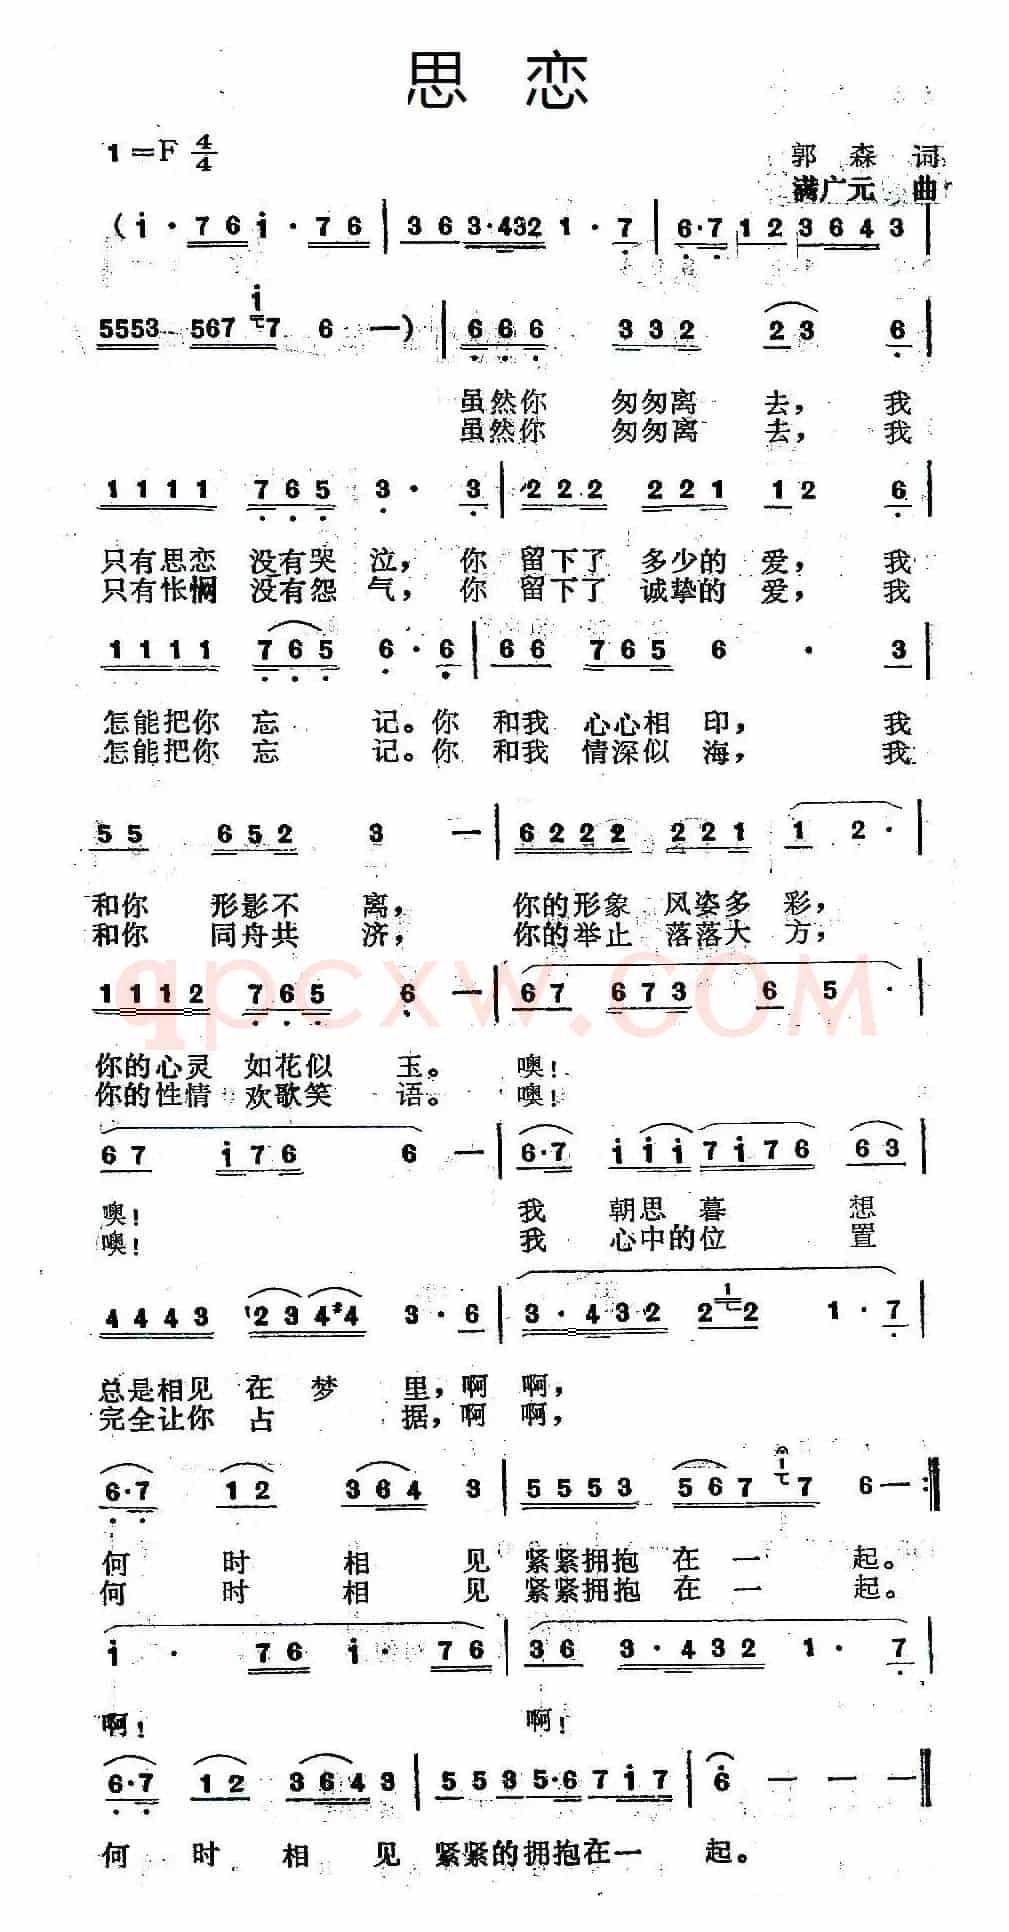 思 恋
1=F 4/4
郭 森 词
满广元 曲
(i·76i·76|363·4321·7|6·7123643|
5553 567i7 6 —)|666 332 23 6|
虽然你 匆匆离 去，我
虽然你 匆匆离 去，我
1111 765 3· 3|222 221 12 6|
只有思恋 没有哭 泣，你 留下了 多少的 爱，我
只有怅惘 没有怨 气，你 留下了 诚挚的 爱，我
1111 765 6·6|66 765 6 · 3|
怎能把你 忘 记。你 和我 心心相 印，我
怎能把你 忘 记。你 和我 情深似 海，我
55 652 3 —|6222 221 1 2·|
和你 形影不 离，你的形象 风姿多 彩，
和你 同舟共 济，你的举止 落落大 方，
1112 765 6 —|67 673 6 5·|
qpcxw.com
你的心灵 如花似 玉。噢！
你的性情 欢歌笑 语。噢！
67 i76 6 —|6·7 iii7i76 63|
噢！ 我 朝思暮 想
噢！ 我 心中的位 置
4443 1234#4 3·6|3·432 212 1·7|
总是相见 在 梦 里，啊 啊，
完全让你 占 据，啊 啊，
6·7 12 364 3|5553 56717 6—:‖
何 时 相 见 紧紧拥抱 在 一 起。
何 时 相 见 紧紧拥抱 在 一 起。
i· 76 i· 76|36 3·432 1· 7|
啊！ 啊！
6·7 12 3643|5535·67i7|6 — — —‖
何 时 相 见 紧紧的拥抱在一 起。